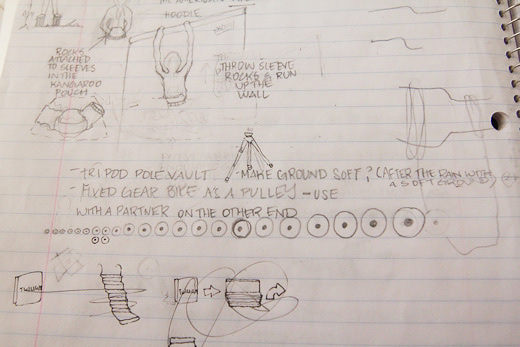 AN AMERICAN
HOODIE
ROCKS
ATTACHED
TO SLEEVES
IN THE
KANGAROO
POUCH
THROW SLEEVE
ROCKS & RUN
UP THE
WALL
- TRIPOD POLE VAULT - MAKE GROUND SOFT? (AFTER THE RAIN WITH
A SOFT GROUND)
- FIXED GEAR BIKE AS A PULLEY - USE
WITH A PARTNER ON THE OTHER END